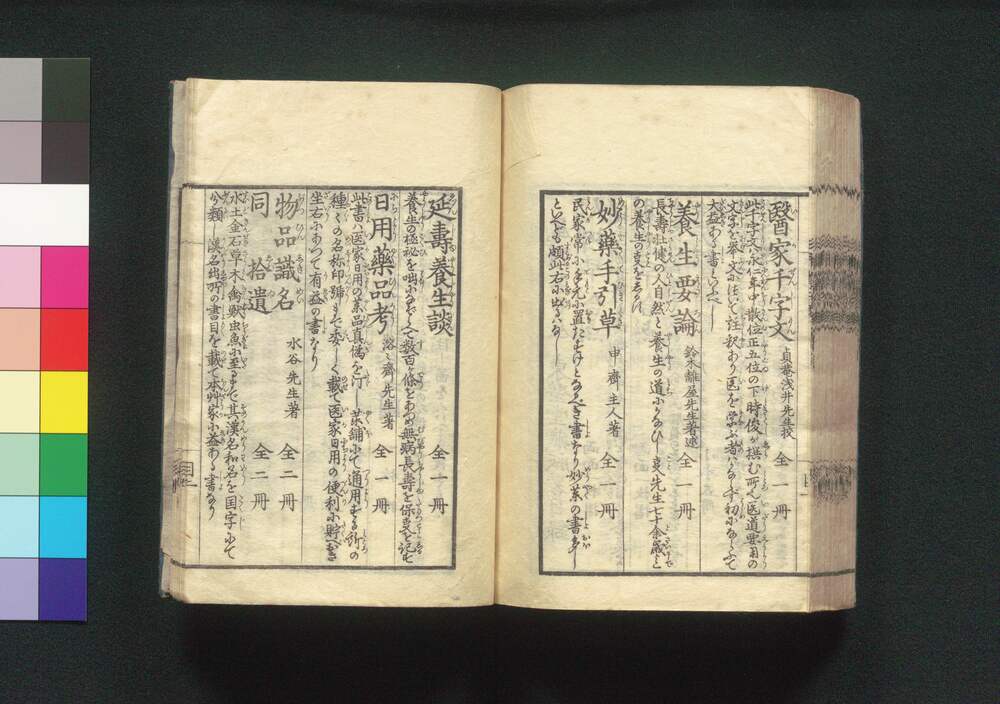 醫家千字文 貞菴浅井先生校 全一冊
此千字文ハ永仁年中散位正五位の下時俊が撰む所也医道要用の
文字を挙文に注釈あり医を学ぶ者ハかならず初にならふて
大益ある書といふべし
養生要論 鈴木離屋先生著述 全一冊
長壽壮健の人自然と養生の道にかなひし支先生七十余歳
の養生の支を
妙藥手引草 申齊主人著 全一冊
民家常に
延壽養生談 全一冊
養生の極秘を 数百ヶ條をあつめ無病長壽を保支を記せ
日用藥品考 先生著 全一冊
此書ハ医家日用の薬品真偽を訂し薬舗にて通用する所の
種〻の名称印號まで委しく載て医家日用の便利に貯へおき
坐右にあつて有益の書なり
物品識名 水谷先生著 全二冊
同拾遺 全二冊
水土金石草木禽獣虫魚に至るまで其漢名和名を国字にて
分類し漢名出所の書目を載て本艸家に益ある書なり